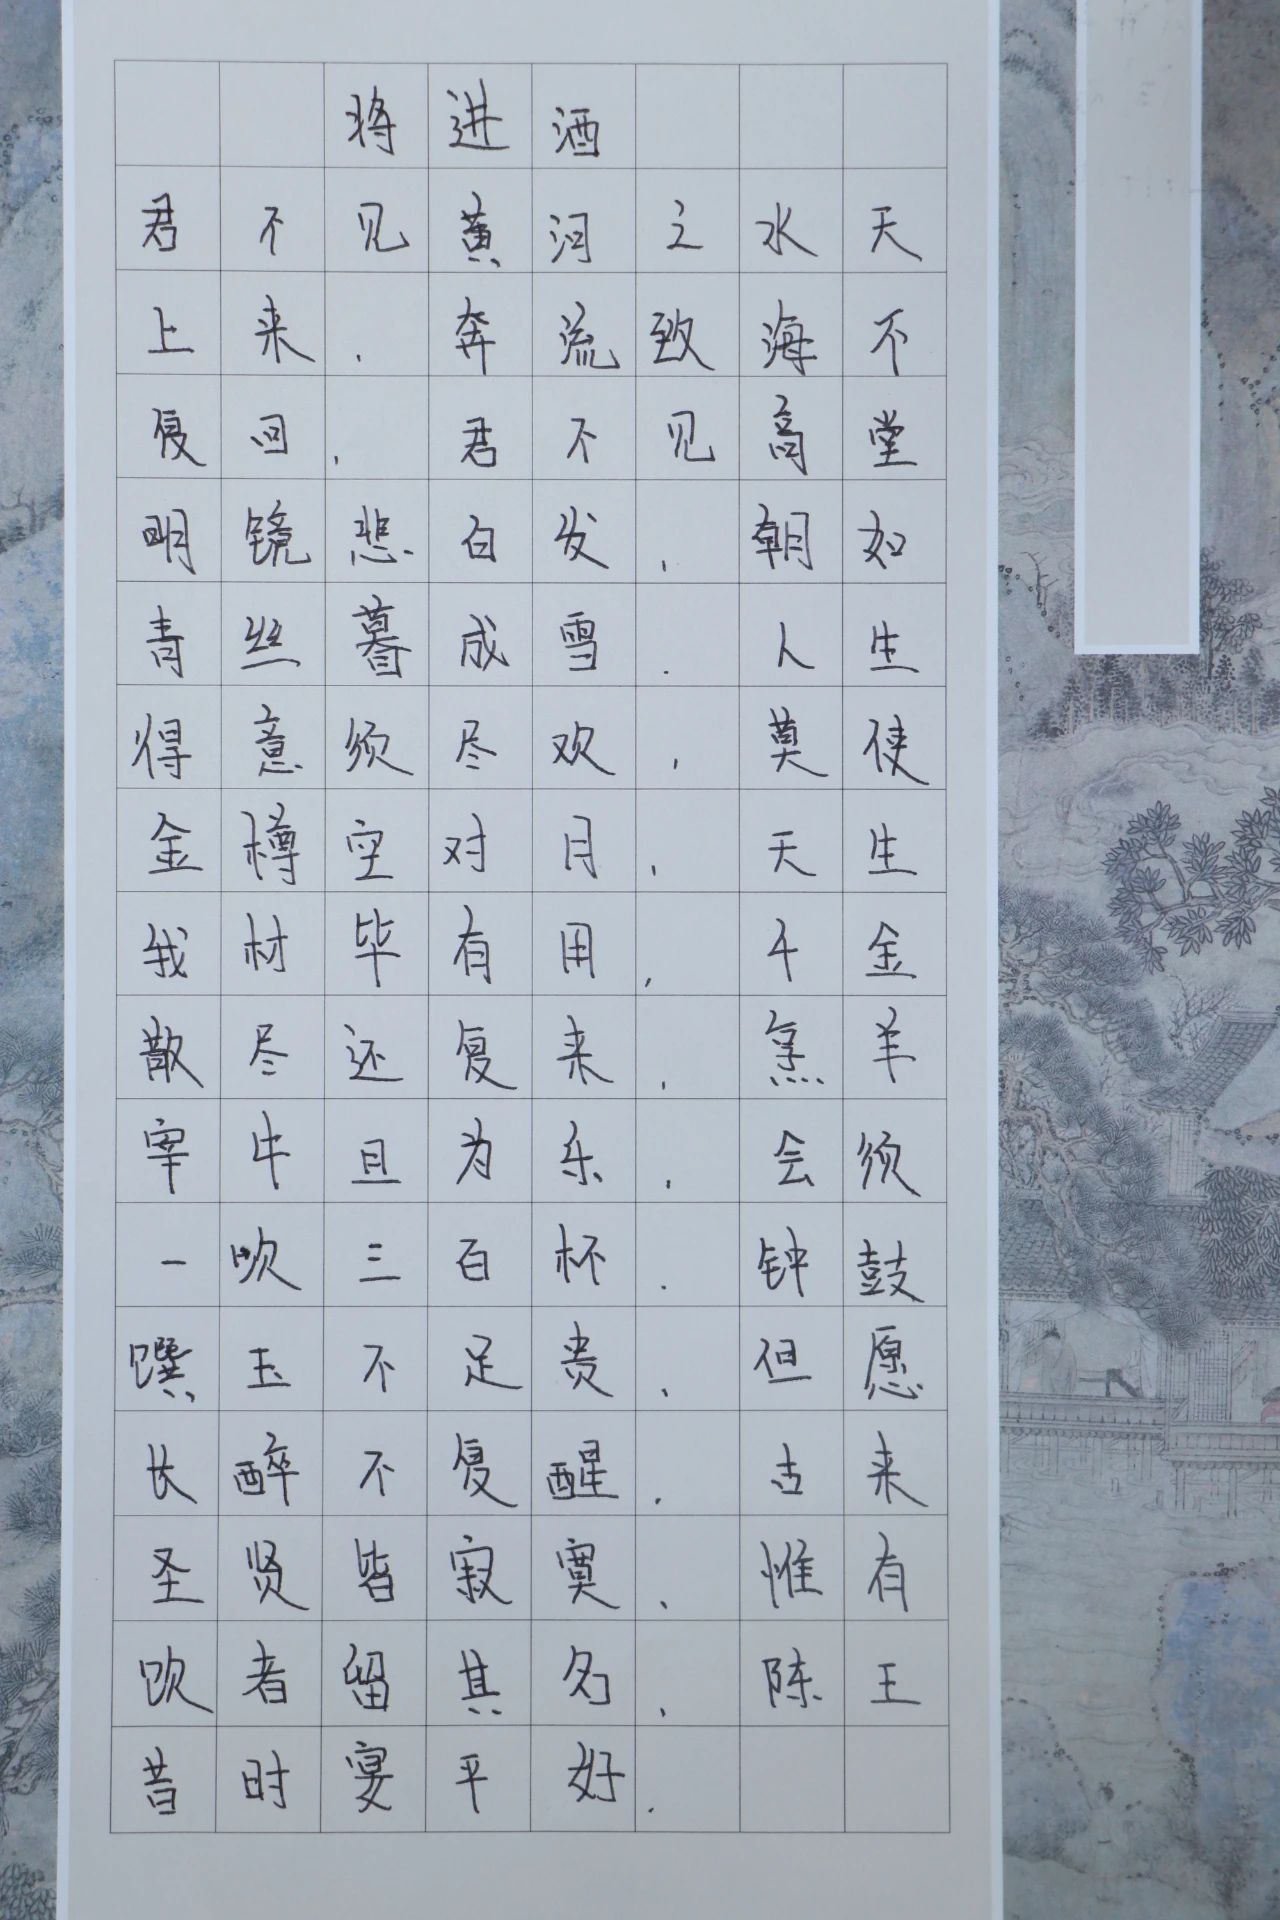 将进酒
君不见黄河之水天
上来，奔流致海不
复回，君不见高堂
明镜悲白发，朝如
青丝暮成雪．人生
得意须尽欢，莫使
金樽空对月，天生
我材毕有用，千金
散尽还复来，烹羊
宰牛且为乐，会须
一吹三百杯．钟鼓
馔玉不足贵，但愿
长醉不复醒，古来
圣贤皆寂寞、惟有
吹者留其名，陈王
昔时宴平好．